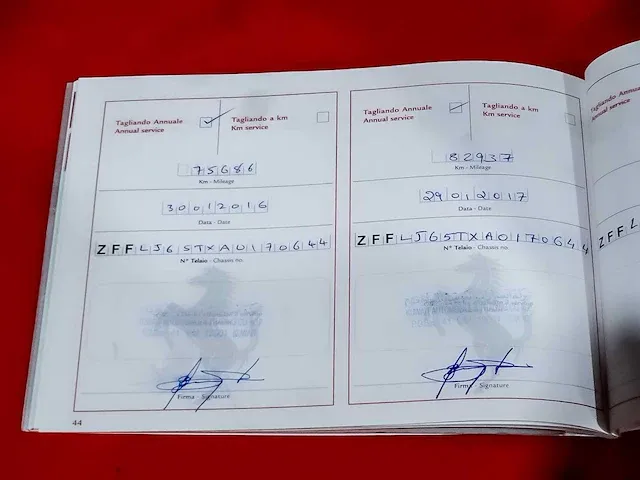 Tagliando Annuale
Annual service
Tagliando a km
Km service
75686
Km - Mileage
30012016
Data - Date
ZFFLJ65TXA0170644
N° Telaio - Chassis no.
Firma - Signature
44
Tagliando Annuale
Annual service
Tagliando a km
Km service
82937
Km - Mileage
29012017
Data - Date
ZFFLJ65TXA0170644
N° Telaio - Chassis no.
Firma - Signature
Tagliando Annua
Annual service
ZFFL